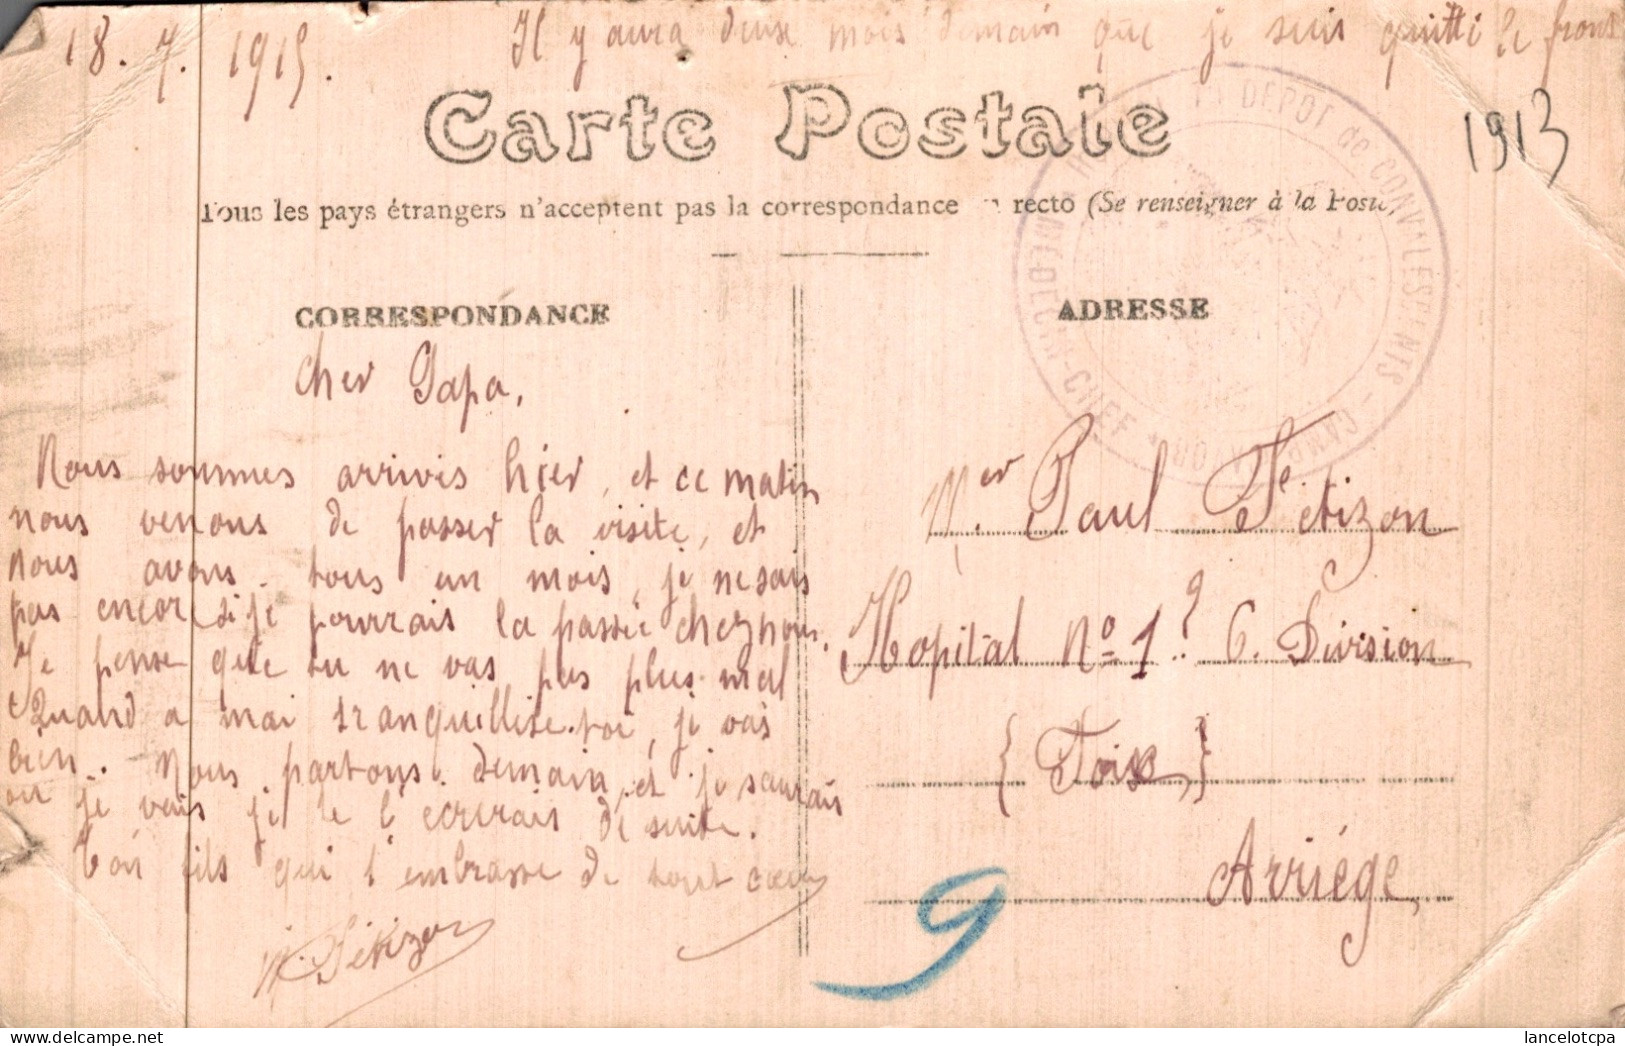 18.7.1915. Il y aura deux mois demain que je suis quitté le front
Carte Postale
1913
Tous les pays étrangers n'acceptent pas la correspondance au recto (Se renseigner à la Poste)
DÉPOT de CONVALESCENTS - CAMP MÉDECIN-CHEF
CORRESPONDANCE
ADRESSE
Cher Papa,
Nous sommes arrivés hier, et ce matin
nous venons de passer la visite, et
nous avons tous un mois, je ne sais
pas encore si je pourrais la passée chez nous.
Je pense que tu ne vas pas plus mal
Quand a moi tranquillise-toi, je vas
bien. Nous partons demain, et je saurais
ou je vais je te l'ecrirais de suite.
Ton fils qui t'embrasse de tout cœur
M. Fétizon
Mer. Paul Fétizon
Hopital No 1 6. Division
{Foix,}
Arriége,
9
lancelotcpa